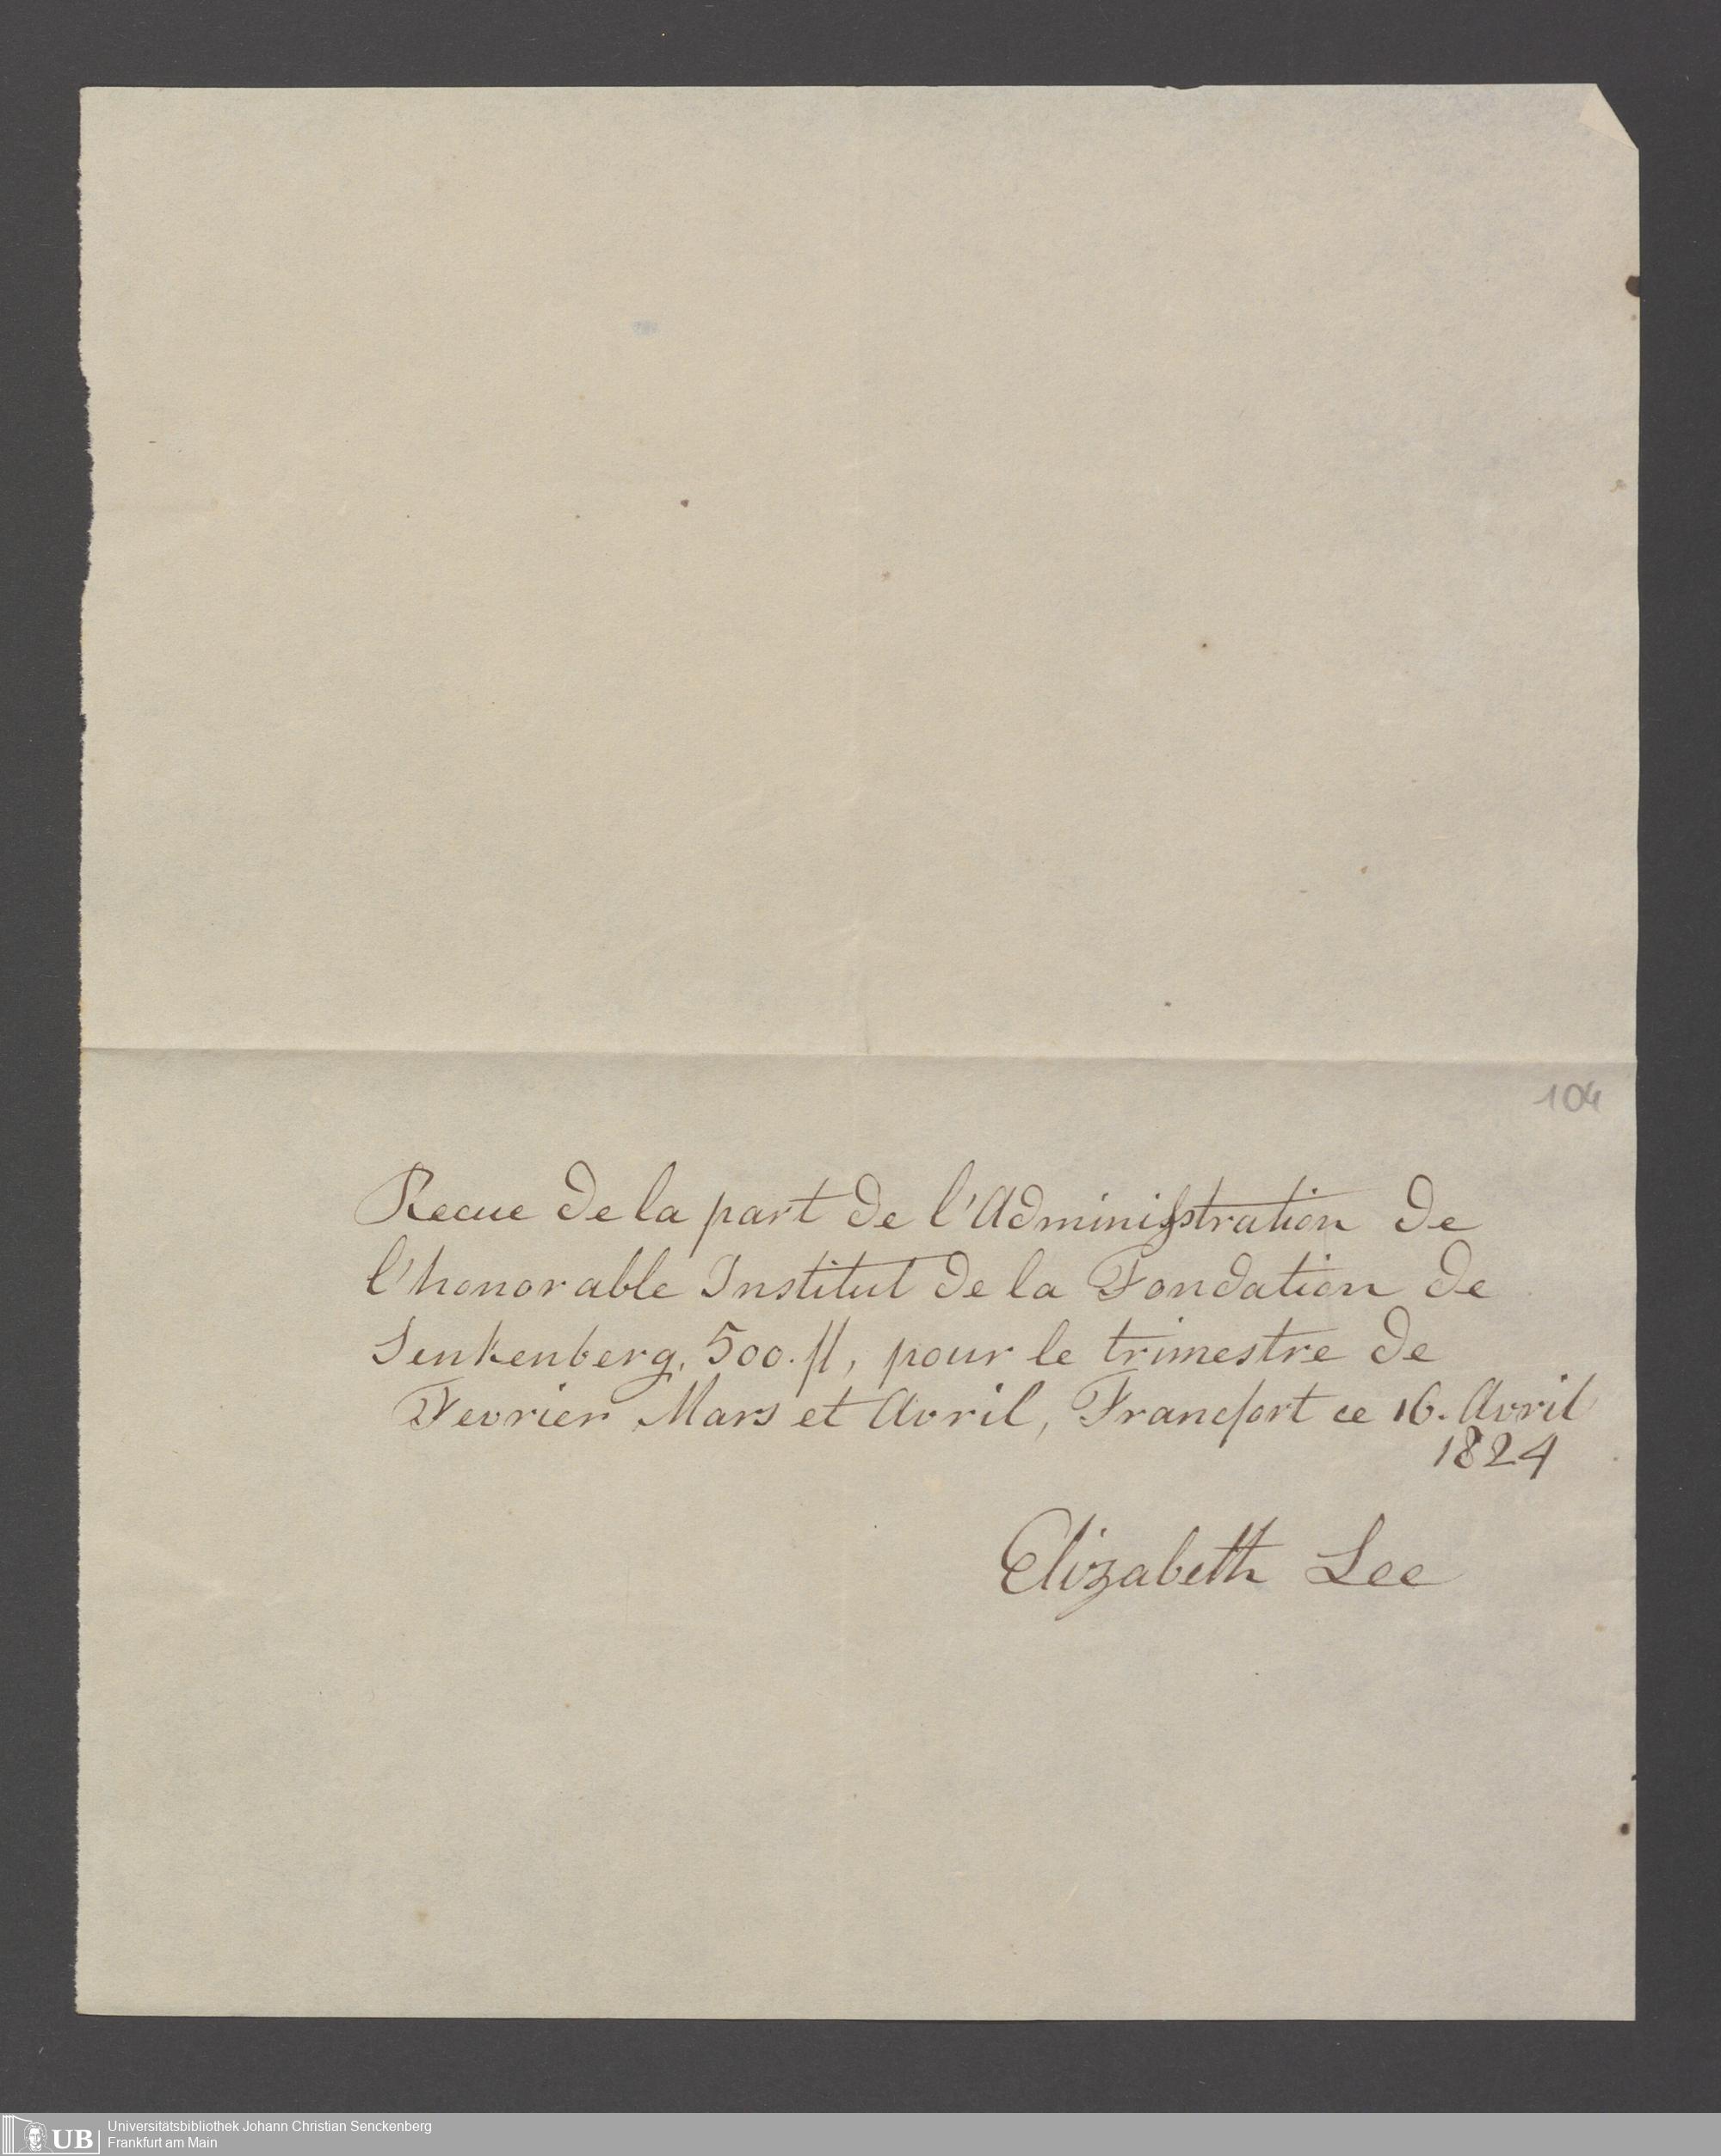 104
Recue de la part de l'Administration de
l'honorable Institut de la Fondation de
Senkenberg, 500. fl, pour le trimestre de
Fevrier Mars et Avril, Francfort ce 16. Avril
1824
Elizabeth Lee
UB
Universitätsbibliothek Johann Christian Senckenberg
Frankfurt am Main